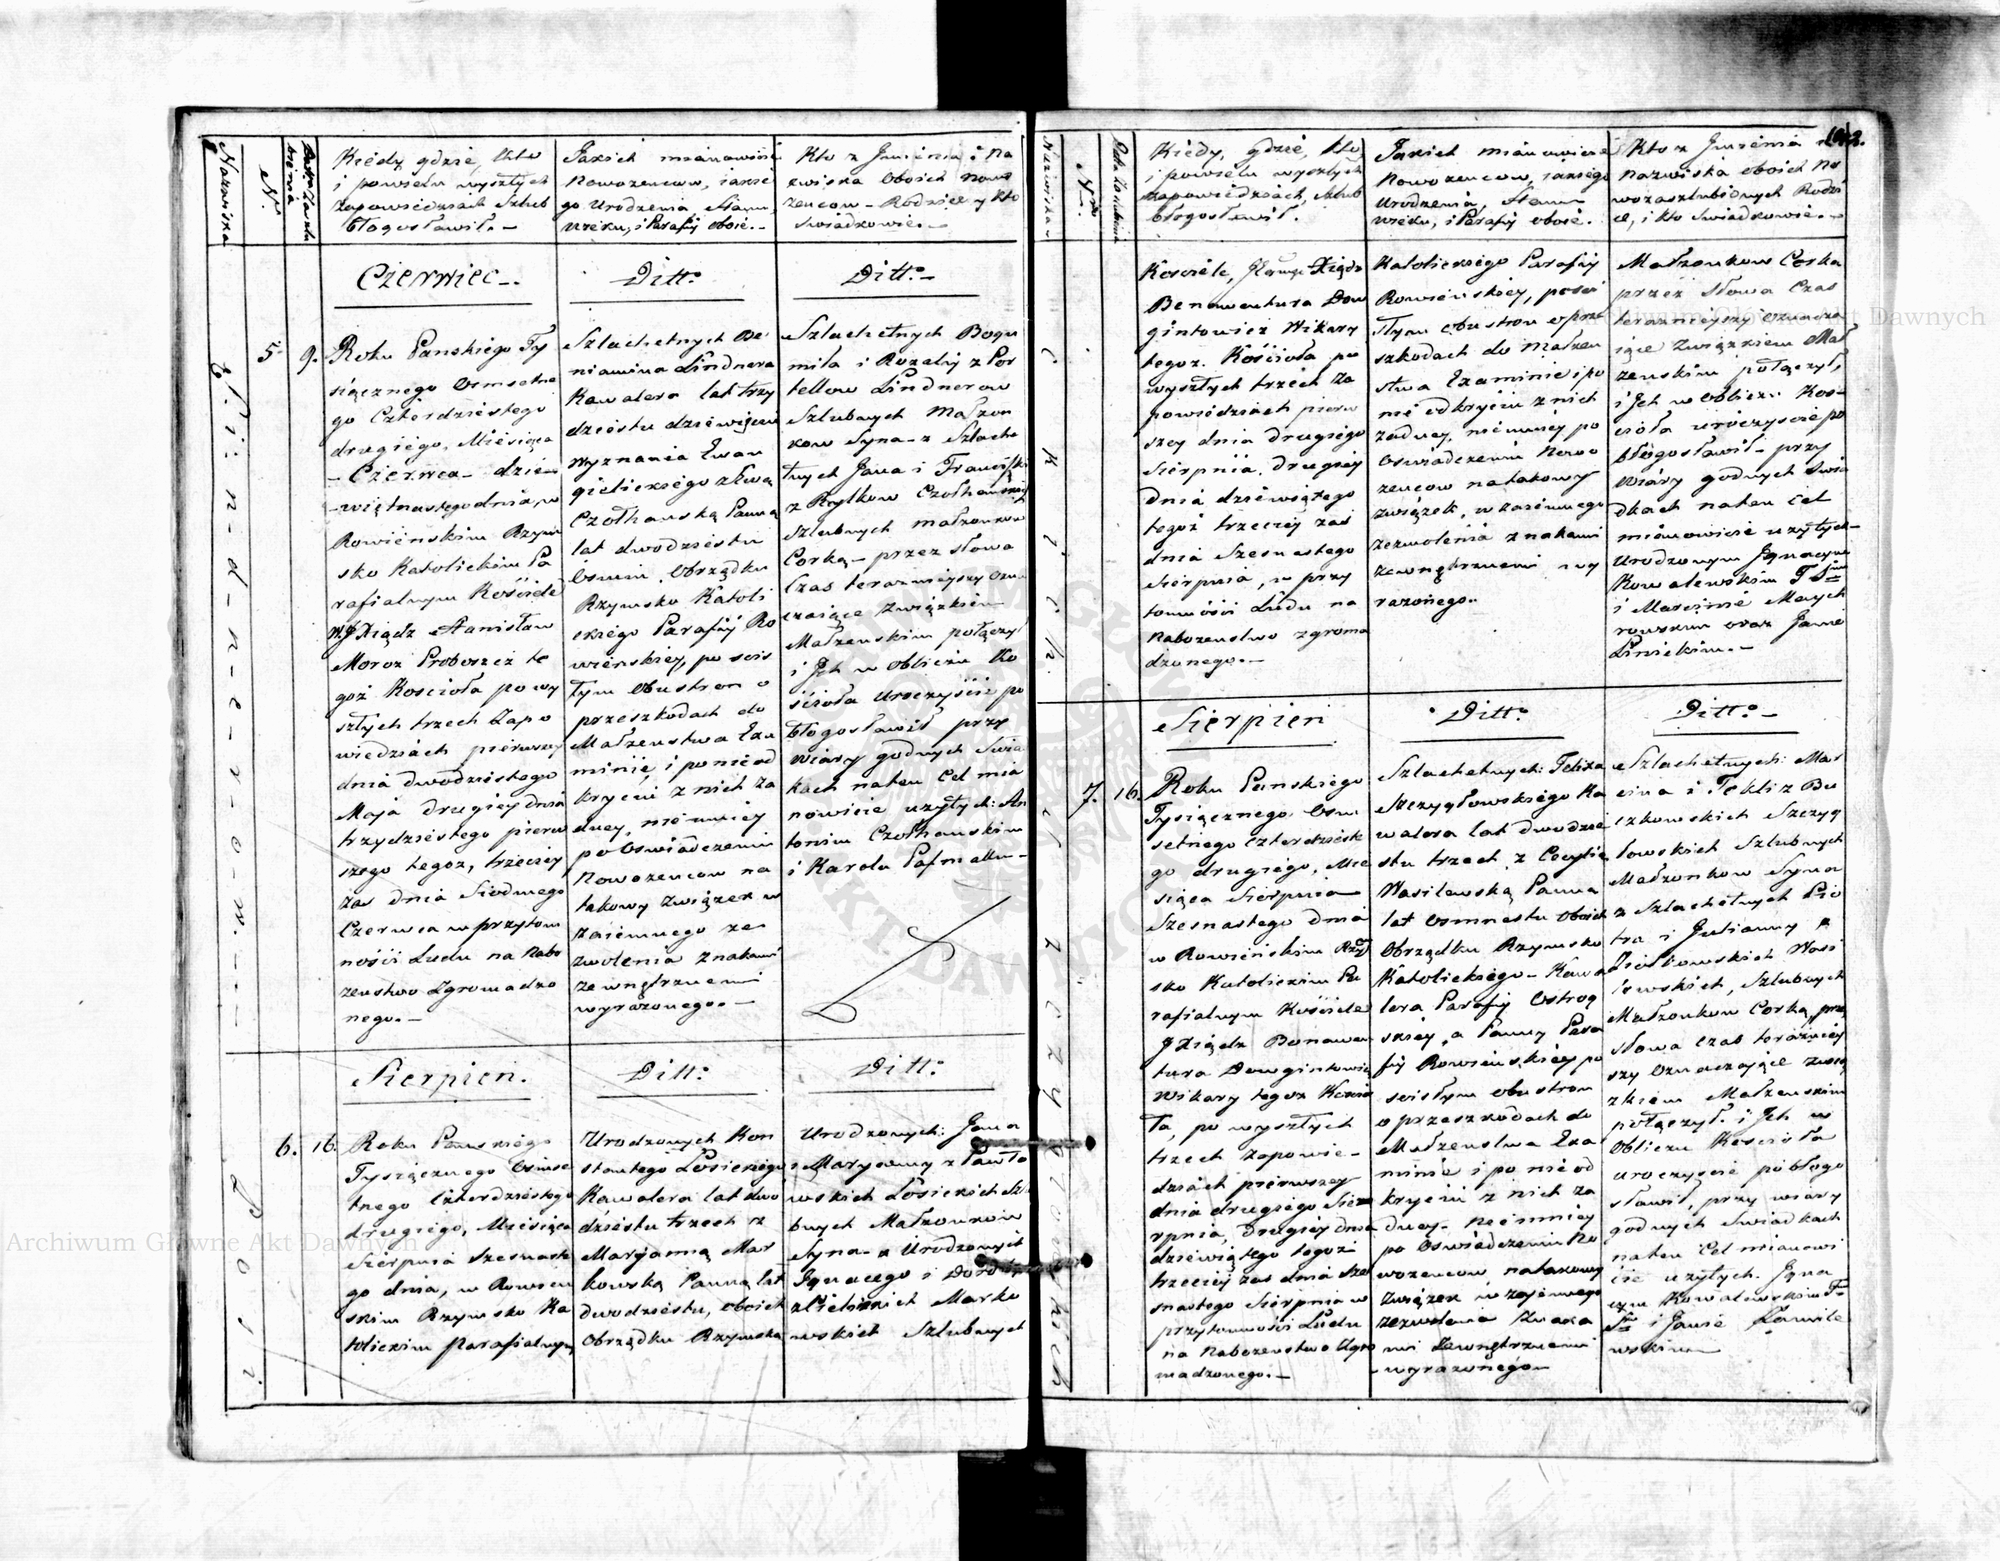 Nazwiska
Nr
Data Zaślubienia
Kiédy gdzié, kto
i powielu wyszłych
zapowiedziach szlub
błogosławił.-
Jakich mianowicie
Nowożencow, iakie
go Urodzenia, stanu,
wieku, i Parafij oboié.-
Kto z Jmienia i Na
zwiska oboich Nowo
żencow - Rodzice y kto
swiadkowie.-
Czerwiec.-
Ditto
Ditto-
5 9. Roku Panskiego Ty
siącznego Osmsetne
go Czterdziéstego
drugiégo, Miésiąca
- Czerwca - dzie-
-więtnastego dnia, w
Rowiénskim Rzym
sko Katolickim Pa
rafialnym Kościele
W. J. Xiądz Stanisław
Moroz Proboszcz te
goż Kościoła powy
szłych trzech Zapo
wiedziach piérwszey
dnia dwódziéstego
Maja drugiey dnia
trzydziéstego piérw
szego tegoz, trzeciéy
zas dnia Siódmego
Czerwca w przytom
nósci Ludu na Nabo
zenstwo Zgromadzo
nego.-
Szlachetnych Be
niamina Lindnera
Kawalera lat trzy
dziéstu dziéwięciu
Wyznania Ewan
gielickiégo z Ewą
Czołhanską Panną
lat dwodziéstu
Osmiu, Obrządku
Rzymsko Katoli
ckiego Parafij Ro
wieńskiéy, po scis
łym obustron o
przeszkodach do
Małzenstwa Exa
minié, i ponieod
kryciu z nich ża
dney, niémniey
po Oswiadczeniu
Nowozencow na
takowy związek w
zaiémnego ze
zwolenia znakami
zewnętrznemi
wyrażonego.-
Szlachetnych Bogu
miła i Rozalij z Por
tellow Lindnerow
Szlubnych Małzon
kow Syna - z Szlache
tnych Jana i Franciszki
z Rylkow Czołhanskich
Szlubnych małzonkow
Corką - przez słowa
Czas teraznieyszy ozn
czaiące Związkiem
Małzenskim połączył
i Jch w obliczu Ko
sciola uroczyscié po
błogosławił przy
wiary godnych Swia
kach naten Cel mia
nowicie uzytych: An
tonim Czołhanskim
i Karolu Patmallu-
L-i-n-d-n-e-r-o-w.
Sierpien.
Ditto
Ditto
6. 16. Roku Panskiégo
Tysiącznego Osmse
tnego Czterdziéstego
drugiégo, Miésiąca
Siérpnia szesnaste
go dnia, w Rowien
skim Rzymsko Ka
tolickim Parafialnym
Urodzonych Kon
stantego Łosickiégo
Kawalera lat dwo
dziéstu trzech z
Maryanną Mar
kowską Panną lat
dwodziéstu, oboich
Obrządku Rzymsko
Urodzonych: Jana
i Maryanny z Pawło
wskich Łosickich Szl
bnych Małzonkow
Syna - z Urodzonych
Ignacego i Doroty
Marko
wskich Szlubnych
Nazwiska
Nr
Data Zaslubienia
Kiédy, gdzié, kto,
i powielu wyszłych
zapowiédziach, szlub
błogosławił.
Jakich mianowicie
Nowozencow, iakiégo
Urodzenia, Stanu
wieku, i Parafij oboié.
Kto z Jmienia i
Nazwiska oboich No
wozaszlubionych Rodzi
ce, i kto Swiadkowié.-
Kosciele, Xiądz
Benawentura Dow
gintowicz Wikary
tegoz Kościoła po
wyszłych trzech Za
powiédziach piérw
szey dnia drugiégo
Siérpnia, drugiéy
dnia dziéwiątego
tegoż trzeciéy zas
dnia szesnastego
Siérpnia, w przy
tomności Ludu na
Nabozenstwo zgroma
dzonego.-
Katolickiégo Parafij
Rowiénskiéy, poscis
łym obustron o prze
szkodach do Małzen
stwa Examinie i po
nie odkryciu z nich
zadney, niémniéy po
Oswiadczeniu Nowo
zencow natakowy
związek, wzaiémnego
zezwolenia znakami
zewnętrznemi wy
razonego.
Małzonkow Corką
przez słowa Czas
teraznieyszy oznacza
iące Związkiem Mał
zenskim połączył,
i Jch w obliczu Kos-
cioła uroczyscié po
błogosławił - przy
wiary godnych Swia
dkach naten Cel
mianowicie uzytych-
Urodzonym Jgnacym
Kowalewskim
i Marcinié Mary
rowskim oraz Janie
Linickim.-
Sierpień
Ditto
Ditto-
7. 16. Roku Panskiego
Tysiącznego Osm
setnego Czterdziéste
go drugiégo, Mie
siąca Sierpnia
Szesnastego dnia
w Rowiénskim Rzym
sko Katolickim Pa
rafialnym Kościele
J Xiądz Bonawen
tura Dowgintowicz
Wikary tegoz Koscio
ła, po wyszłych
trzech Zapowie-
dziach piérwszey
dnia drugiégo Sier
rpnia, drugiéy dnia
dziéwiątego tegoż
trzeciéy zas dnia Sze
snastego Siérpnia w
przytomności Ludu
na Nabozenstwo Zgro
madzonego.-
Szlachetnych: Felixa
Szczygłowskiégo Ka
walera lat dwodzie
stu trzech, z Cecylią
Wasilewską Panną
lat osmnastu oboich
Obrządku Rzymsko
Katolickiégo - Kawa
lera Parafij Ostrog
skiéy, a Panny Para
fij Rowieńskiéy po
scisłym obustron
o przeszkodach do
Małzenstwa Exa
minie i po nieod
kryciu z nich za
dney - Niémniéy
po Oswiadczeniu No
wozencow, natakowy
związek wzajemnego
zezwolenia Znaka
mi Zewnętrznemi
-wyrazonego-
Szlachetnych: Mar
cina i Tekli z Bu
czkowskich Szczyg
łowskich Szlubnych
Małzonkow Syna
z Szlachetnych Pio
tra i Julianny z
Wasi
lewskich, Szlubnych
Małzonkow Corką, prze
słowa Czas teraznéy
szy oznaczające zwią
zkiem Małzenskim
połączył i Jch w
Obliczu Kościoła
uroczyscié pobłogo
sławił, przy wiary
godnych Swiadkach
naten Cel mianowi
cie uzytych. Jgna
cym Kowalewskim
i Janie Kamile
wskim